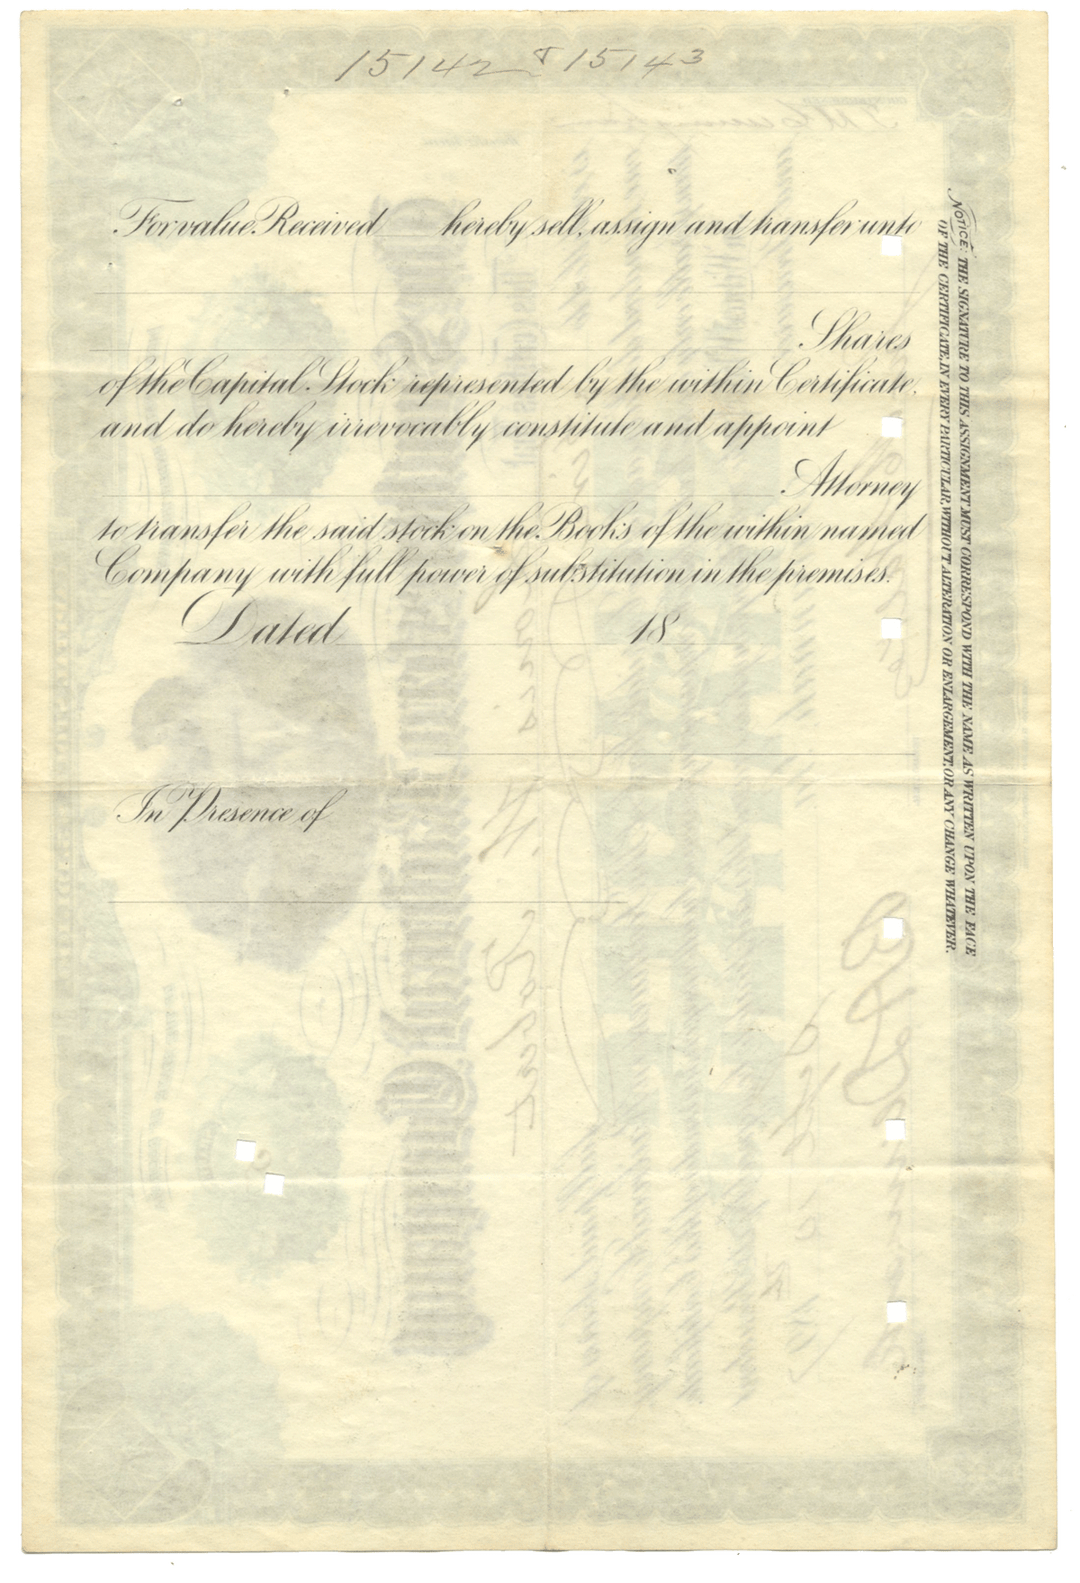 15142 & 15143
For value Received hereby sell, assign and transfer unto
Shares
of the Capital Stock represented by the within Certificate,
and do hereby irrevocably constitute and appoint
Attorney
to transfer the said stock on the Books of the within named
Company with full power of substitution in the premises.
Dated 18
In Presence of
NOTICE: THE SIGNATURE TO THIS ASSIGNMENT MUST CORRESPOND WITH THE NAME AS WRITTEN UPON THE FACE
OF THE CERTIFICATE, IN EVERY PARTICULAR, WITHOUT ALTERATION OR ENLARGEMENT, OR ANY CHANGE WHATEVER.